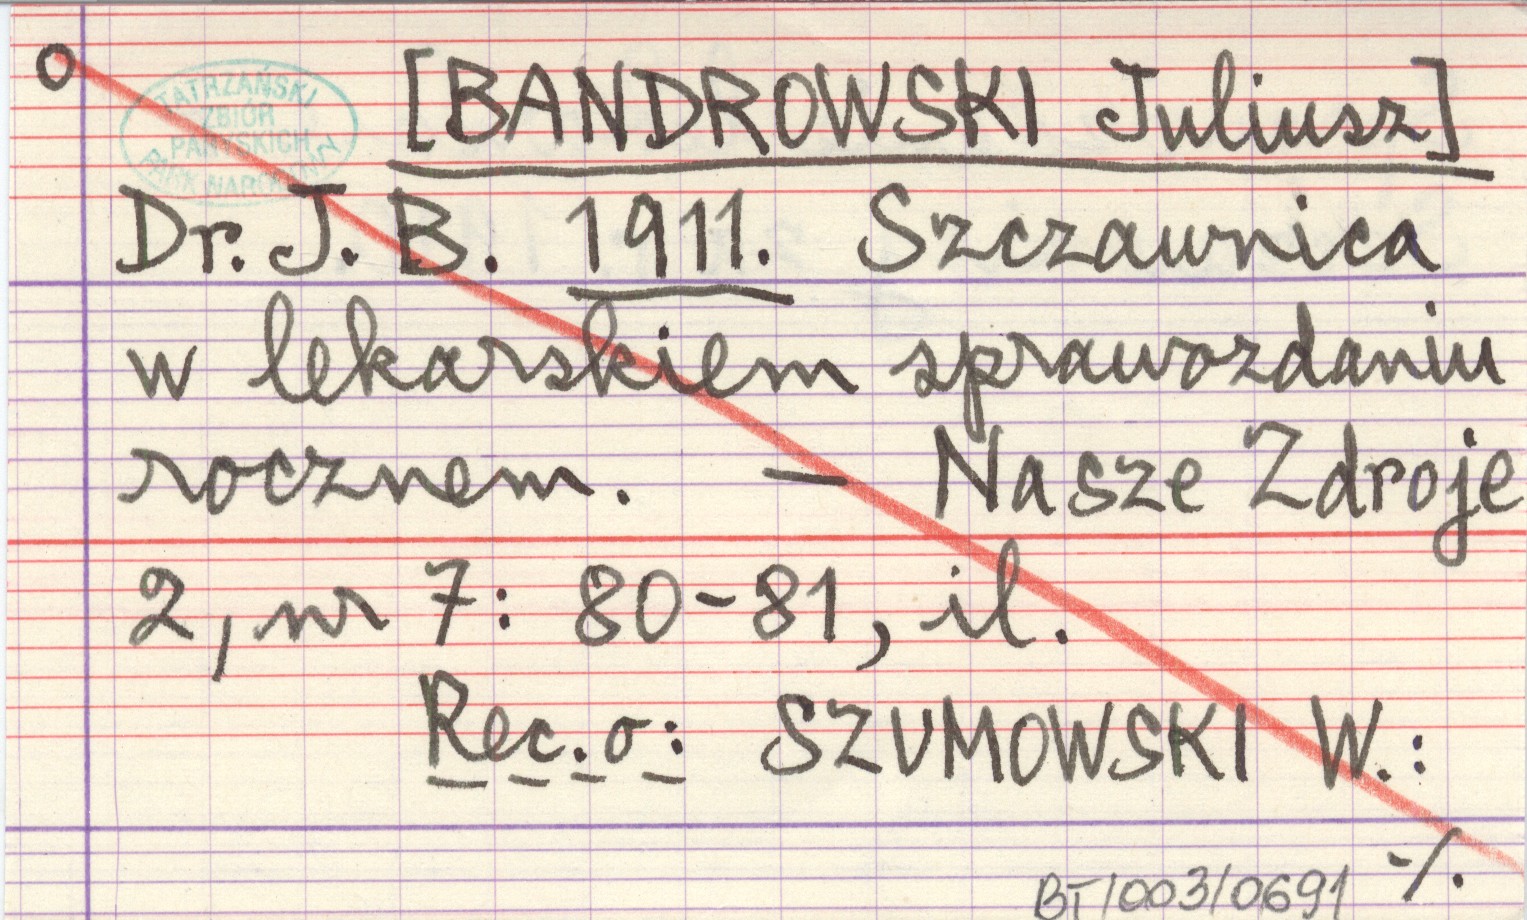 O
TATRZAŃSKI
ZBIÓR
[BANDROWSKI Juliusz]
Dr. J. B. 1911. Szczawnica
w lekarskiem sprawozdaniu
rocznem. – Nasze Zdroje
2, nr 7: 80-81, il.
Rec. o: SZUMOWSKI W.:
BT/003/0691 ·/.